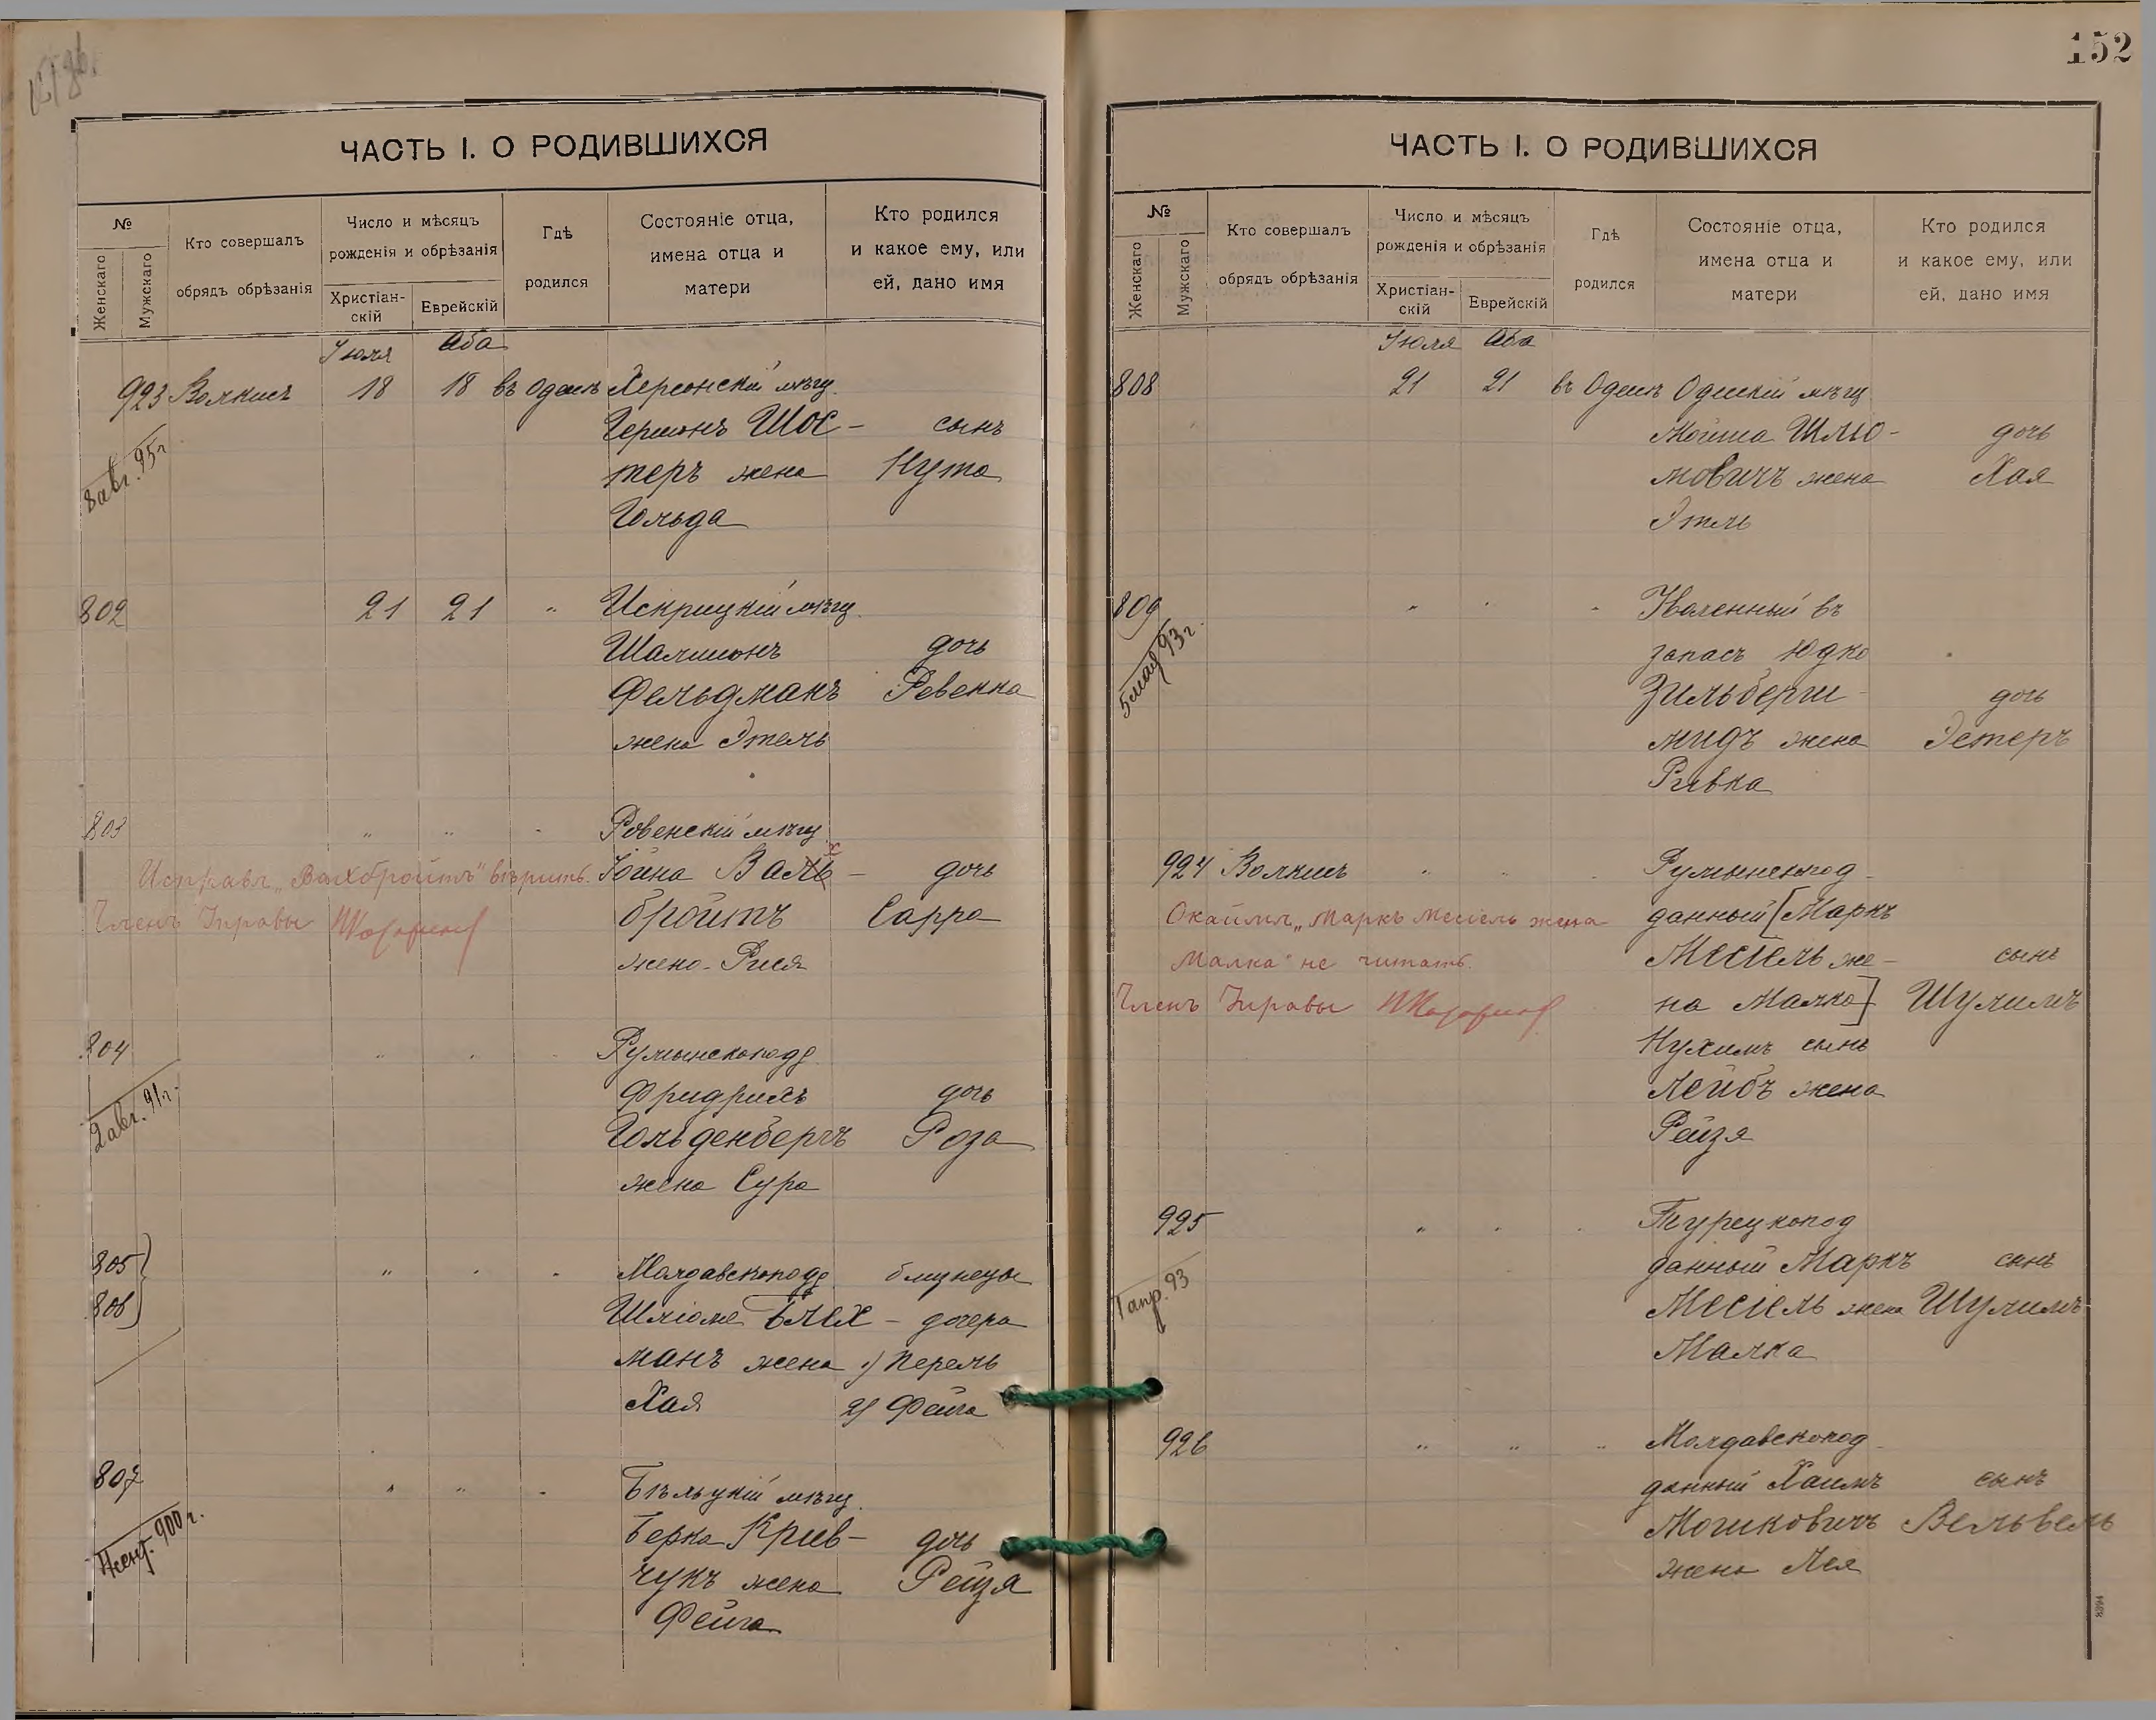 152
ЧАСТЬ I. О РОДИВШИХСЯ
№
Женскаго
Мужскаго
Кто совершалъ
обрядъ обрѣзанія
Число и мѣсяцъ
рожденія и обрѣзанія
Христіан-
скій
Еврейскій
Гдѣ
родился
Состояніе отца,
имена отца и
матери
Кто родился
и какое ему, или
ей, дано имя
Іюля Аба
923 Волкись 18 18 въ Одессѣ Херсонскій мѣщ.
Гершонъ Шос- сынъ
теръ жена Нута
Гольда
8 авг. 95 г
802 21 21 " Искрицкій мѣщ.
Шалимонъ дочь
Фельдманъ Ревекка
жена Этель
803 " " " Ровенскій мѣщ.
Исправл. „Вахбройтъ" вѣрить. Іойна Валь- х дочь
Членъ Управы бройтъ Сарра
жена Рися
804 " " " Румынскоподд.
Фридрихъ дочь
Гольденбергъ Роза
жена Сура
2 авг. 91 г.
805 " " " Молдавскоподд. близнецы
806 Шліоме Блех- дочера
манъ жена 1) Перель
Хая 2) Фейга
807 " " " Бѣльцкій мѣщ.
Берка Крив- дочь
чукъ жена Рейзя
Фейга
900 г.
ЧАСТЬ I. О РОДИВШИХСЯ
№
Женскаго
Мужскаго
Кто совершалъ
обрядъ обрѣзанія
Число и мѣсяцъ
рожденія и обрѣзанія
Христіан-
скій
Еврейскій
Гдѣ
родился
Состояніе отца,
имена отца и
матери
Кто родился
и какое ему, или
ей, дано имя
Іюля Аба
808 21 21 въ Одессѣ Одесскій мѣщ
Мойша Шлио- дочь
мовичъ жена Хая
Этель
809 " " " Уволенный въ
запасъ Юдко
Зильберш- дочь
мидъ жена Эстеръ
Ривка
5 мая 93 г.
924 Волкись " " " Румынскопод-
Окаймл. „Маркъ Месіель жена данный [Маркъ
Малка" не читать. Месіель же- сынъ
Членъ Управы на Малка] Шулимъ
Нухимъ сынъ
Лейбъ жена
Рейзя
925 " " " Турецкопод
данный Маркъ сынъ
Месіель жена Шулимъ
Малка
1 апр. 93
926 " " " Молдавскопод-
данный Хаимъ сынъ
Мошковичъ Вельвель
жена Лея
8394